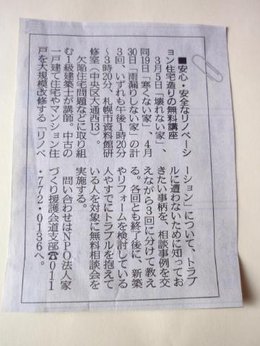 ■安心・安全なリノベーシ
ョン住宅造りの無料講座
3月5日「壊れない家」、
同19日「寒くない家」、4月
30日「雨漏りしない家」の計
3回、いずれも午後1時20分
〜3時20分、札幌市資料館研
修室（中央区大通西13）。
欠陥住宅問題などに取り組
む1級建築士が講師。中古の
一戸建て住宅やマンション住
戸を大規模改修する「リノベ
ーション」について、トラブ
ルに遭わないために知ってお
きたい事柄を、相談事例を交
えながら3回に分けて教え
る。各回とも終了後に、新築
やリフォームを検討している
人やすでにトラブルを抱えて
いる人を対象に無料相談会を
実施する。
問い合わせはNPO法人家
づくり援護会道支部☎011
・772・0136へ。